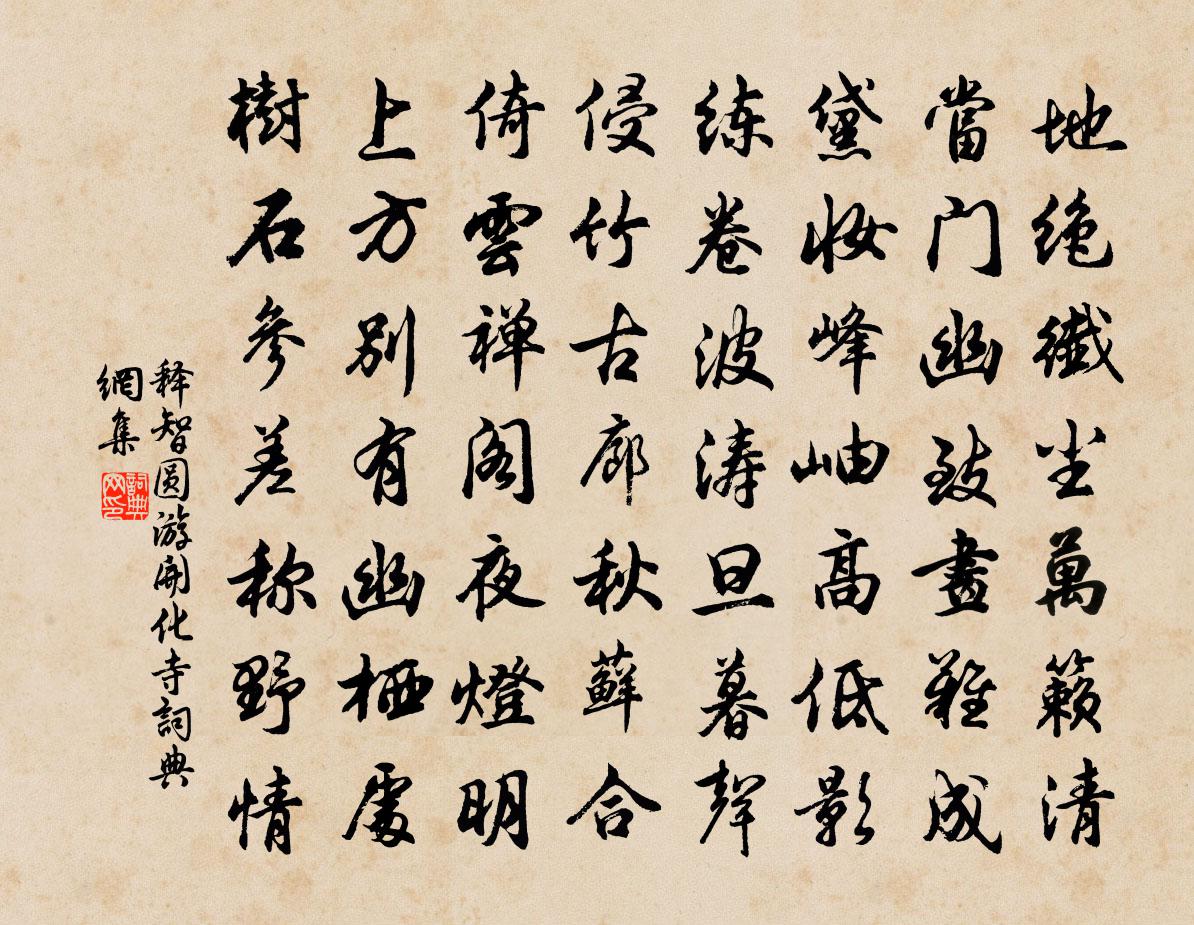 地绝纤尘萬籁清
當门幽致畫難成
黛妆峰岫高低影
练卷波涛旦暮聲
侵竹古廊秋藓合
倚雲禅阁夜燈明
上方别有幽栖處
樹石参差称野情
释智圆游開化寺詞典
網集
詞典
网印